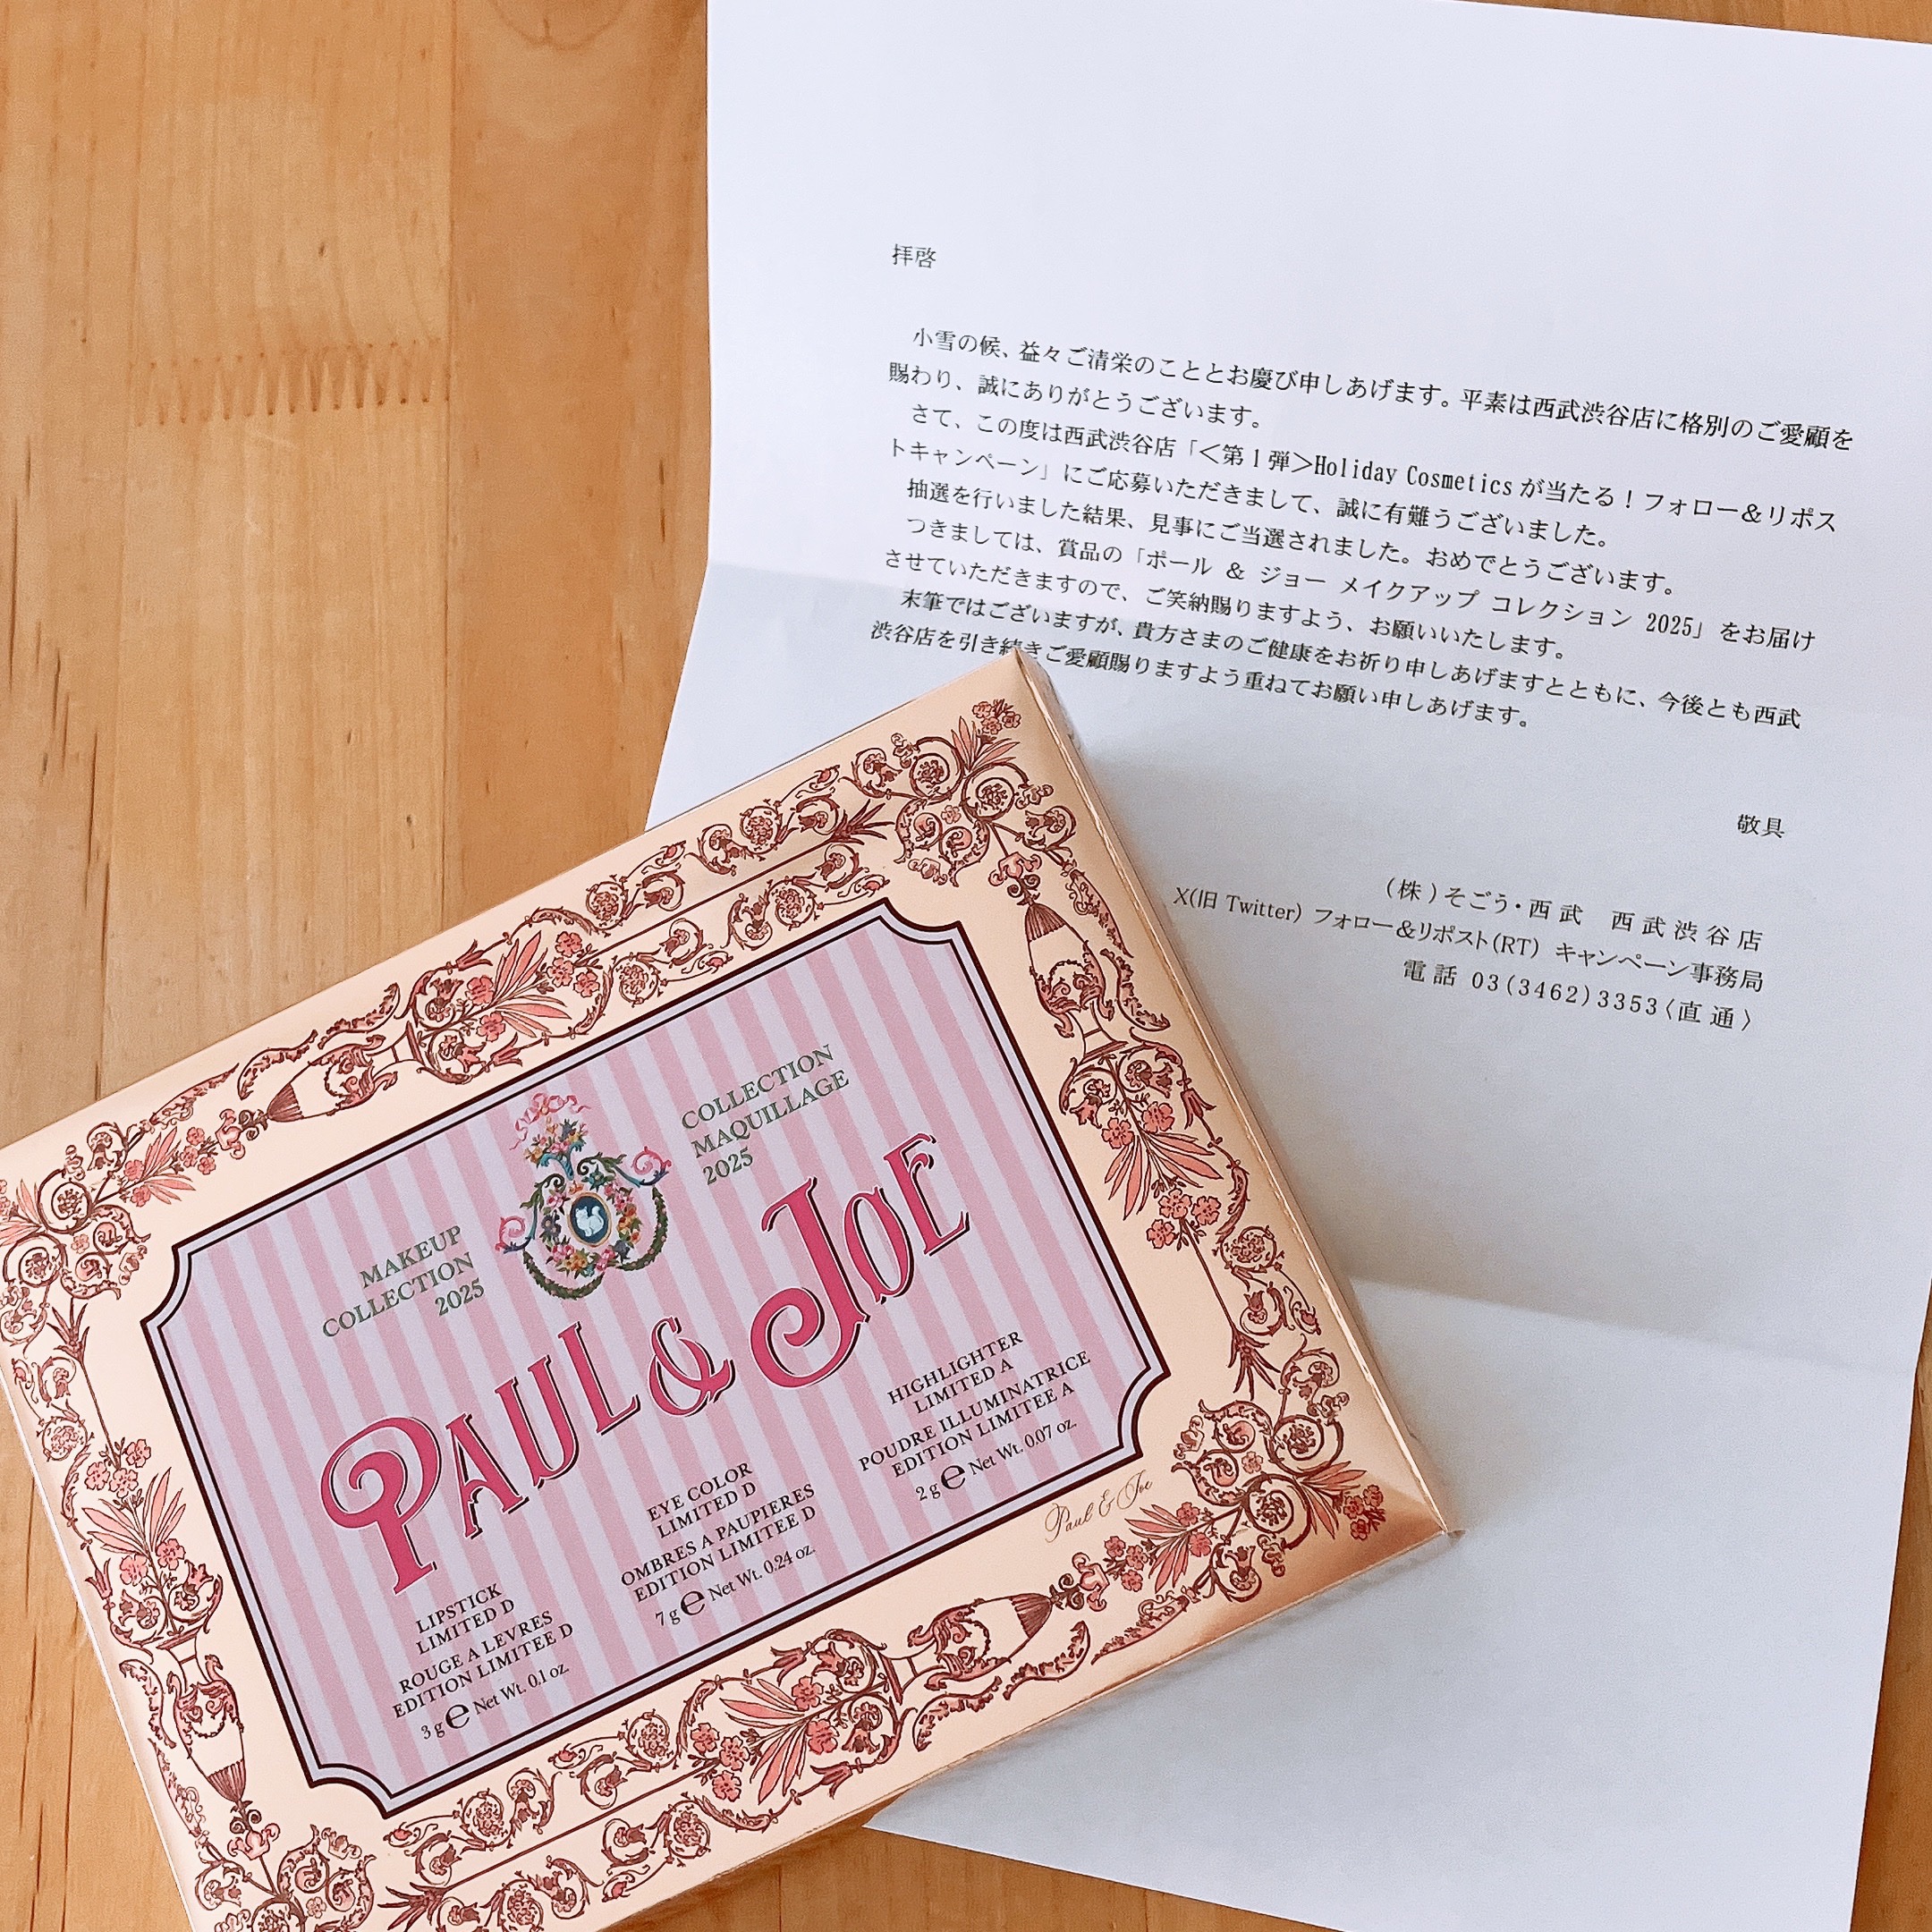 拝啓
小雪の候、益々ご清栄のこととお慶び申しあげます。平素は西武渋谷店に格別のご愛顧を
賜わり、誠にありがとうございます。
さて、この度は西武渋谷店「＜第1弾＞Holiday Cosmeticsが当たる！フォロー＆リポス
トキャンペーン」にご応募いただきまして、誠に有難うございました。
抽選を行いました結果、見事にご当選されました。おめでとうございます。
つきましては、賞品の「ポール ＆ ジョー メイクアップ コレクション 2025」をお届け
させていただきますので、ご笑納賜りますよう、お願いいたします。
末筆ではございますが、貴方さまのご健康をお祈り申しあげますとともに、今後とも西武
渋谷店を引き続きご愛顧賜りますよう重ねてお願い申しあげます。
敬具
(株)そごう・西武 西武渋谷店
X(旧Twitter) フォロー＆リポスト(RT) キャンペーン事務局
電話 03(3462)3353〈直通〉
MAKEUP
COLLECTION
2025
COLLECTION
MAQUILLAGE
2025
PAUL & JOE
LIPSTICK
LIMITED D
ROUGE A LEVRES
EDITION LIMITEE D
3 g ℮ Net Wt. 0.1 oz.
EYE COLOR
LIMITED D
OMBRES A PAUPIERES
EDITION LIMITEE D
7 g ℮ Net Wt. 0.24 oz.
HIGHLIGHTER
LIMITED A
POUDRE ILLUMINATRICE
EDITION LIMITEE A
2 g ℮ Net Wt. 0.07 oz.
Paul & Joe